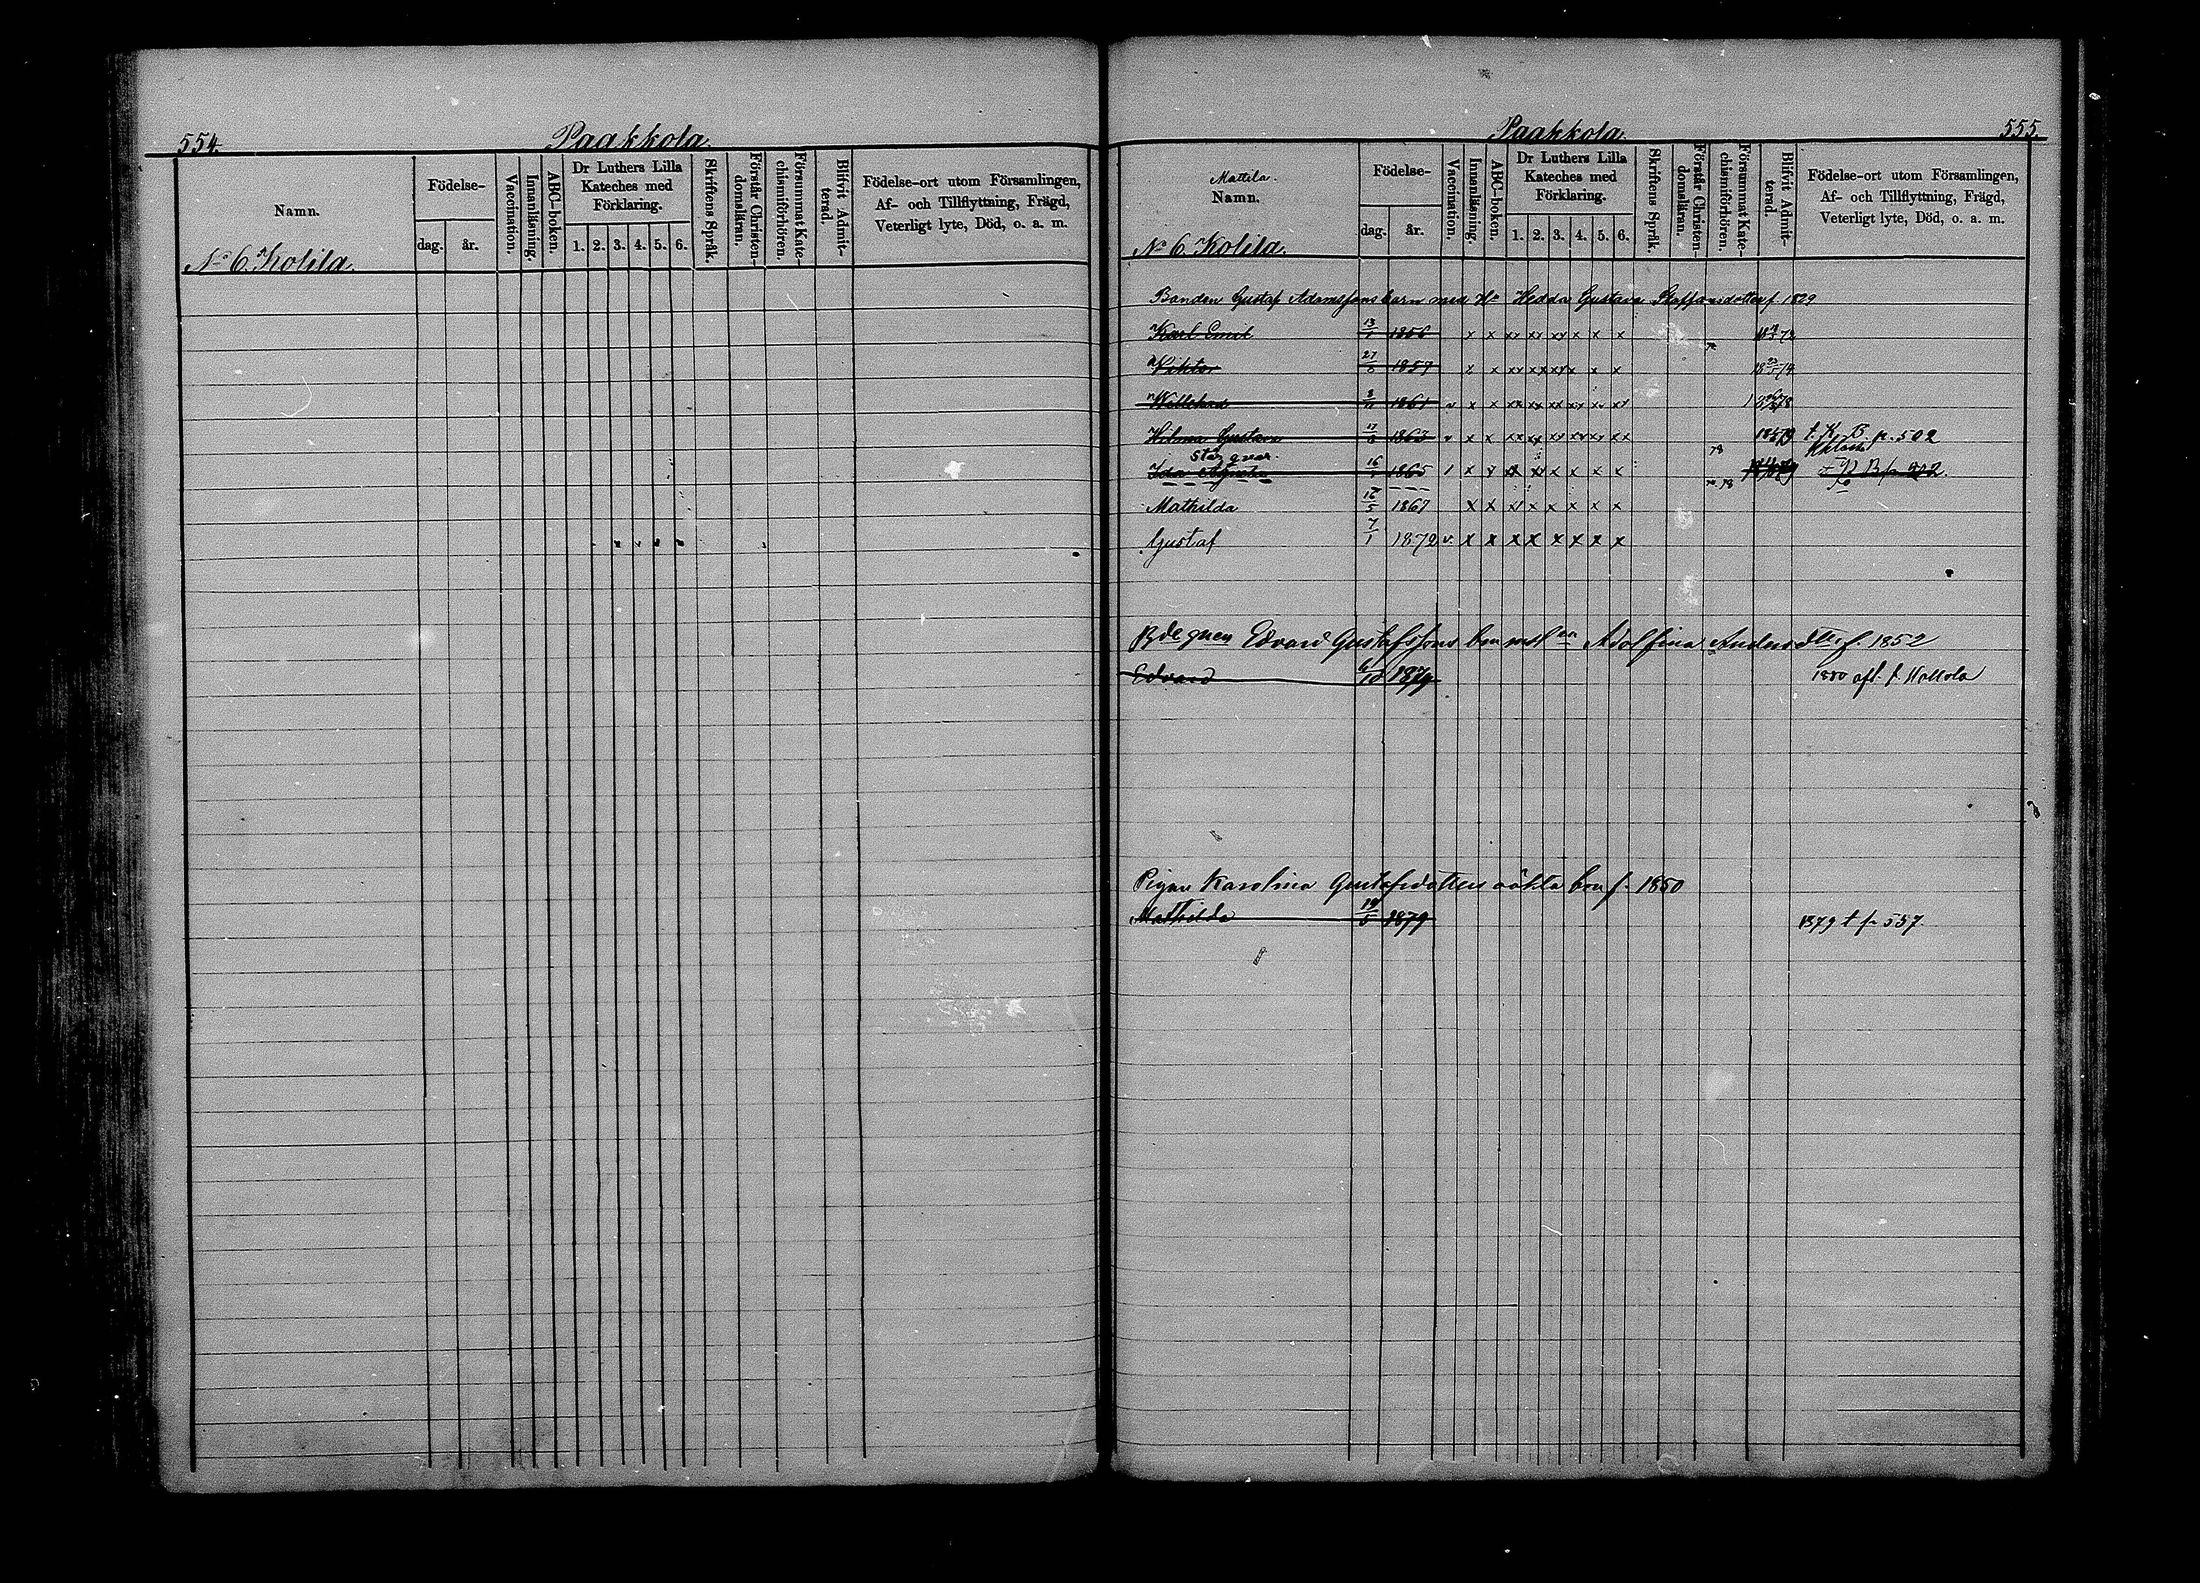 554.
Paakkola.
Namn.
Födelse-
dag.
år.
Vaccination.
Innanläsning.
ABC-boken.
Dr Luthers Lilla
Kateches med
Förklaring.
1. 2. 3. 4. 5. 6.
Skriftens Språk.
Förstår Christen-
domsläran.
Försummat Kate-
chismiförhören.
Blifvit Admit-
terad.
Födelse-ort utom Församlingen,
Af- och Tillflyttning, Frägd,
Veterligt lyte, Död, o. a. m.
No 6 Kolila.
Paakkola.
555.
Mattila.
Namn.
Födelse-
dag.
år.
Vaccination.
Innanläsning.
ABC-boken.
Dr Luthers Lilla
Kateches med
Förklaring.
1. 2. 3. 4. 5. 6.
Skriftens Språk.
Förstår Christen-
domsläran.
Försummat Kate-
chismiförhören.
Blifvit Admit-
terad.
Födelse-ort utom Församlingen,
Af- och Tillflyttning, Frägd,
Veterligt lyte, Död, o. a. m.
No 6. Kolila.
Bonden Gustaf Adamssons barn med Hu Hedda Gustava Staffansdotter f. 1829
Karl Emil 1856 x x xx xx xx x x x
Viktor 1857 x x xx xx xx x x x
1861 v x x xx xx xx xx xx xx
Hilma Gustava 17 1863 v x x xx xx xx xx xx xx 78 t. K. B. p. 502
står qvar.
Ida 16 1865 x x x x x x x
Mathilda 16/5 1867 x x x x x x x x
Gustaf 7/1 1872 v. x x x x x x x x
Edvard Gustafssons barn med Adolfina Andersdtr f. 1852
Edvard 6/10 1879 1880 afl. f. Kollola
Pigan Karolina Gustafsdotters oäkta barn f. 1850
Mathilda 19/5 1879 1879 t p. 557.